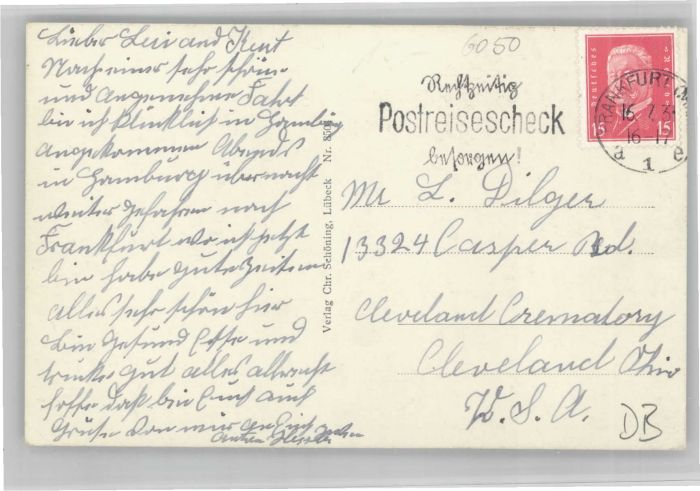 Lieber Leri and Kurt
Nach einer sehr schöne
und angenehme Fahrt
bin ich glücklich in Hamburg
angekommen Abends
in Hamburg übernacht
weiter gefahren nach
Frankfurt wo ich jetzt
bin habe gute Zeit
alles sehr schön hier
bin gesund Esse und
trinke gut alles
hoffe daß bei Euch auch
Grüße von mir an Euch
6050
Rechtzeitig
Postreisescheck
besorgen!
Deutsches Reich
15 15
FRANKFURT (M
16. 7. 3
16-17
a 1 e
Mr L. Dilger
13324 Casper Rd.
Cleveland Crematory
Cleveland Ohio
U.S.A.
DB
Verlag Chr. Schöning, Lübeck Nr. 850